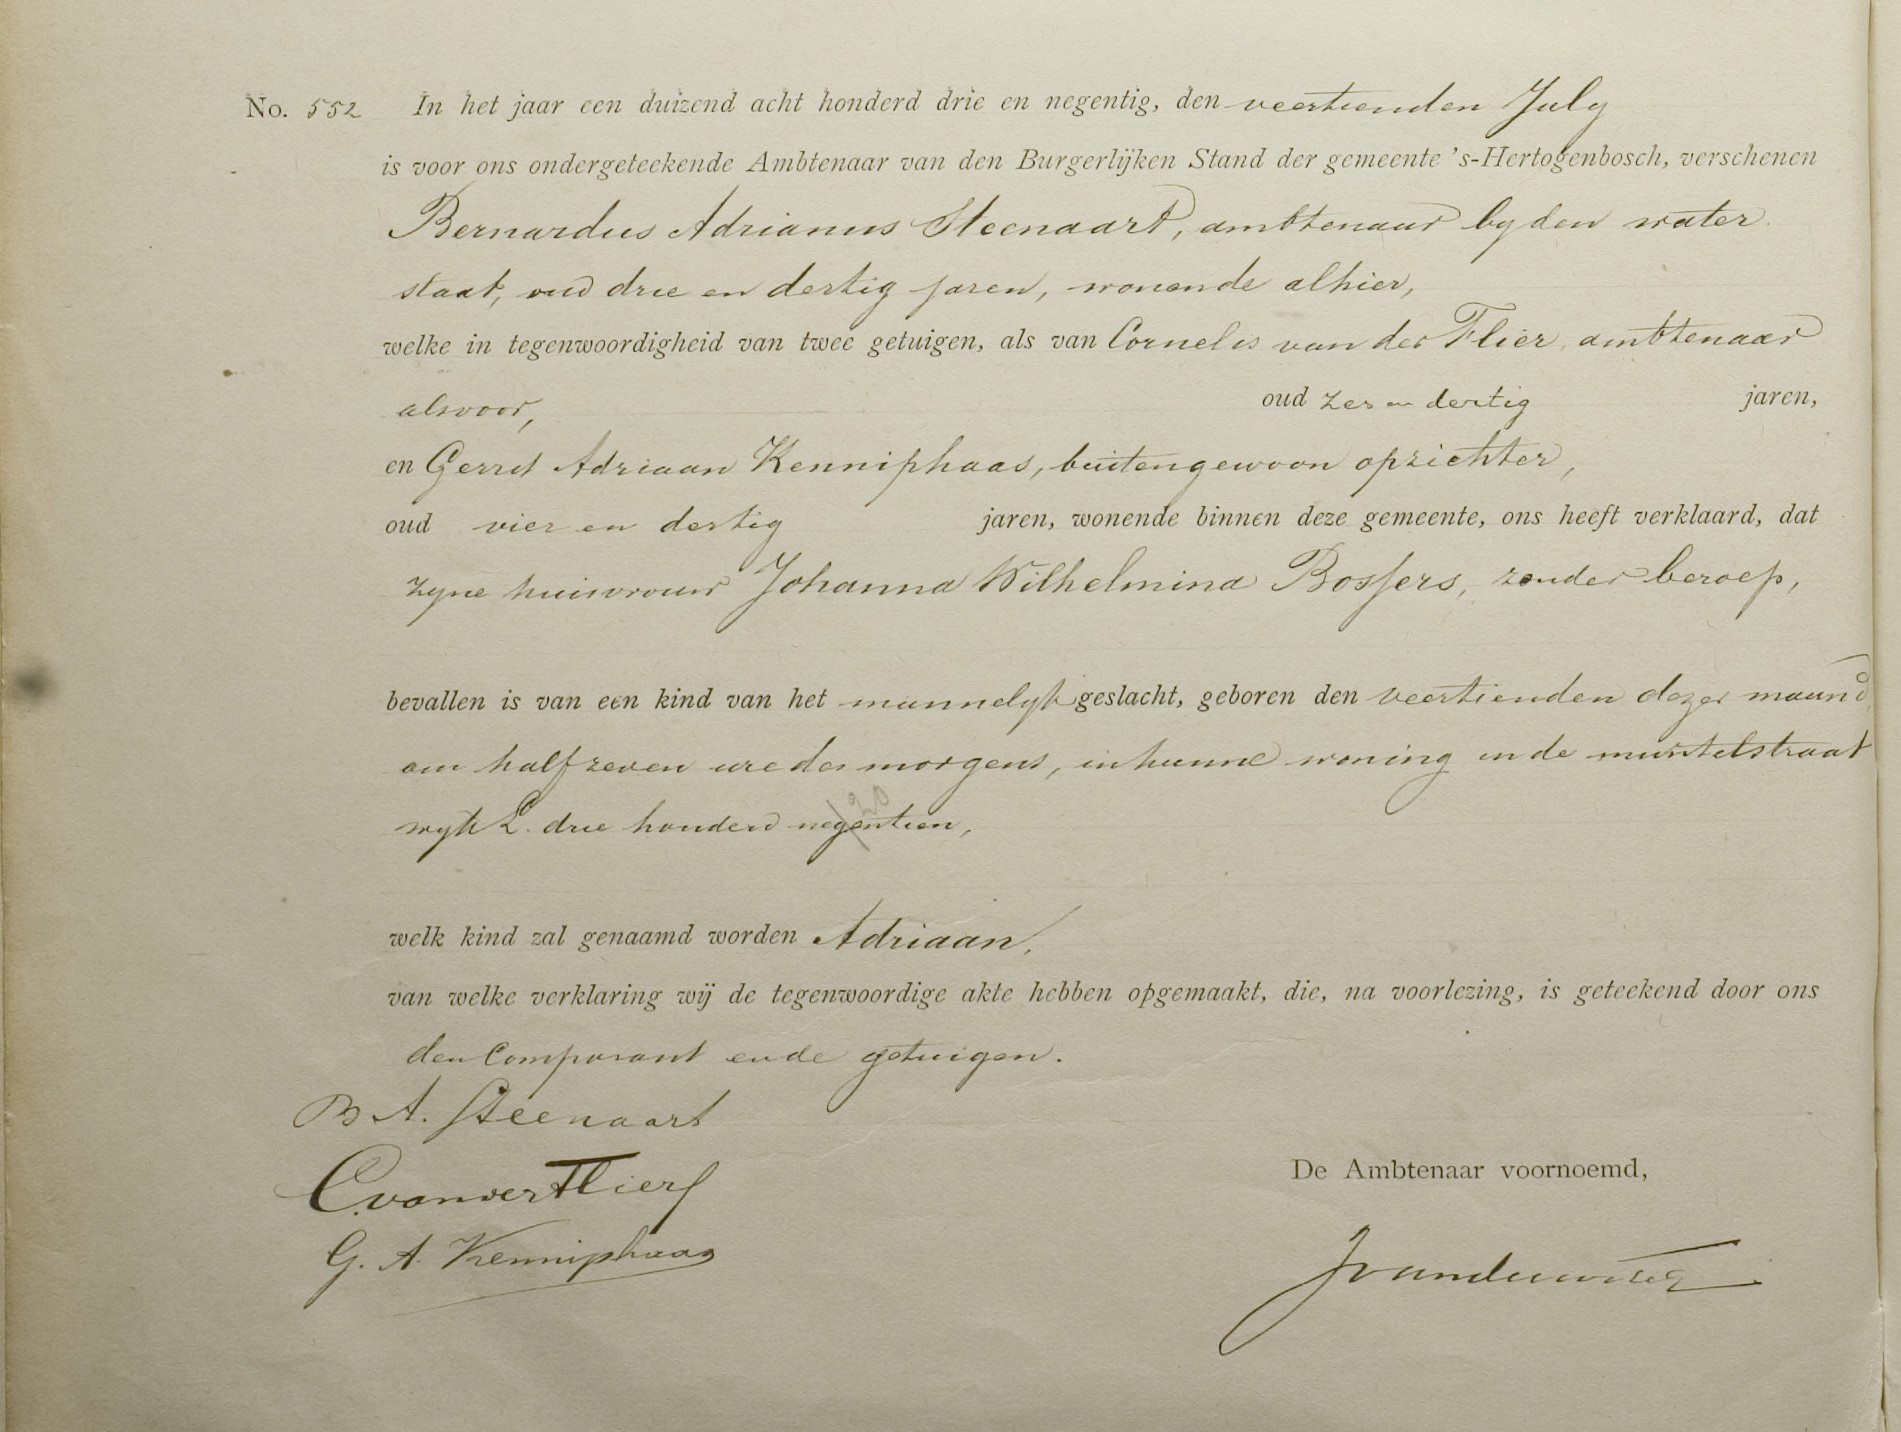 No. 552 In het jaar een duizend acht honderd drie en negentig, den veertienden July
is voor ons ondergeteekende Ambtenaar van den Burgerlijken Stand der gemeente 's-Hertogenbosch, verschenen
Bernardus Adrianus Steenaart, ambtenaar by den water
staat, oud drie en dertig jaren, wonende alhier,
welke in tegenwoordigheid van twee getuigen, als van Cornelis van der Flier, ambtenaar
alsvoor, oud zes en dertig jaren,
en Gerrit Adriaan Kenniphaas, buitengewoon opzichter,
oud vier en dertig jaren, wonende binnen deze gemeente, ons heeft verklaard, dat
zyne huisvrouw Johanna Wilhelmina Bossers, zonder beroep,
bevallen is van een kind van het mannelyk geslacht, geboren den veertienden dezer maand
om half zeven ure des morgens, in hunne woning in de muntelstraat
wyk L. drie honderd negentien, 20
welk kind zal genaamd worden Adriaan,
van welke verklaring wij de tegenwoordige akte hebben opgemaakt, die, na voorlezing, is geteekend door ons
den Comparant en de getuigen.
B A. Steenaart
C. van der Flier
De Ambtenaar voornoemd,
G. A. Kenniphaas